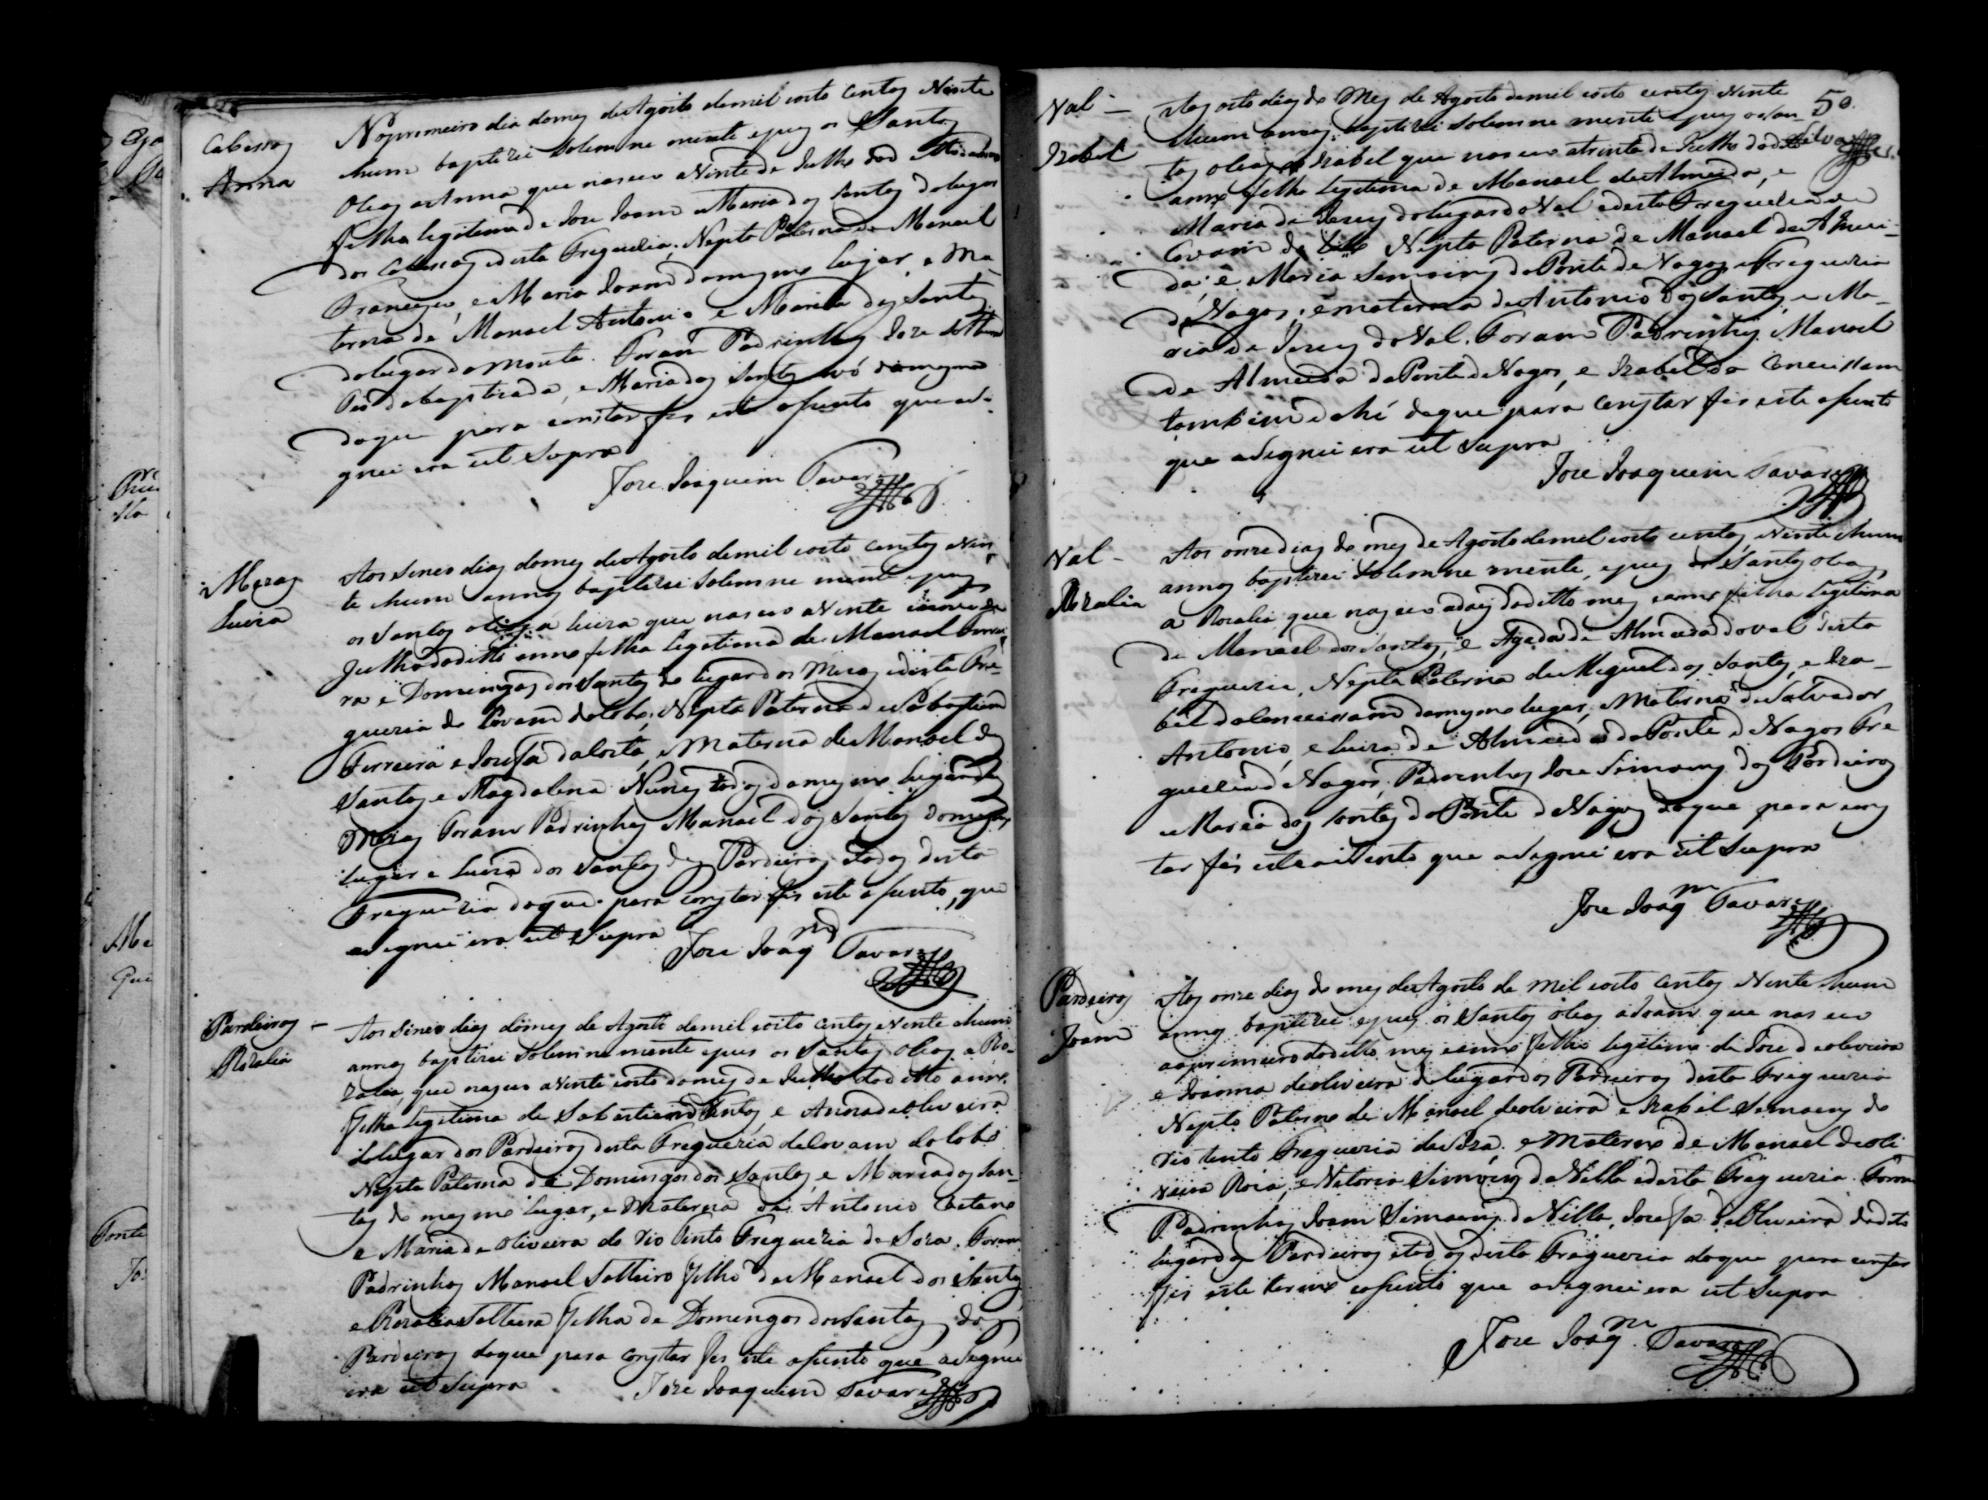 Cabessas
Anna
No primeiro dia do mes de Agosto de mil oito centos e Vinte
hum baptizei solemne mente e puz os Santos
Oleos a Anna que nasceo a Vinte de Julho do d
filha legitima de Jose Joam e Maria dos Santos do lugar
dos Cabessas desta Freguezia, Nepta Paterna de Manoel
Francisco, e Maria Joam do mesmo lugar, e Ma-
terna de Manoel Antonio e Maria dos Santos
do lugar do Monte. Foram Padrinhos Jose
da baptizada, e Maria dos Santos Avó do mesmo
do que para constar fis este asento que asi-
gnei era ut Supra
Jose Joaquim Tavares
Meras
Luiza
Aos sinco dias do mes de Agosto de mil e oito centos e Vin
te hum annos baptizei solemne mente e puz
os Santos oleos a Luiza que nasceo a Vinte
Julho do ditto anno filha Legitima de Manoel Ferrei
ra e Domingas dos Santos do lugar dos Meras desta Fre-
guezia de Covam do Lobo. Nepta Paterna de Sebastiam
Ferreira e Josefa da Costa, e Materna de Manoel dos
Santos e Magdalena Nunes todos do mesmo lugar dos
Meras Foram Padrinhos Manoel dos Santos do mesmo
lugar e Luiza dos Santos dos Pardeiros todos desta
Freguezia do que para constar fis este asento, que
asignei era ut Supra
Jose Joaqm Tavares
Pardeiros -
Rozalia
Aos sinco dias do mes de Agosto de mil e oito centos e Vinte e hum
annos baptizei solemne mente e puz os Santos Oleos a Ro-
zalia, que nasceo a Vinte e oito do mes de Julho do ditto anno.
filha legitima de Sabastiam dos Santos, e Anna de Oliveira
do lugar dos Pardeiros desta Freguezia de Covam do Lobo
Nepta Paterna de Domingos dos Santos, e Maria dos San-
tos do mesmo lugar, e Materna de Antonio Caetano
e Maria de Oliveira do Rio tinto Freguezia de Soza. Foram
Padrinhos Manoel Solteiro filho de Manoel dos Santos
e Rozalia Solteira filha de Domingos dos Santos dos
Pardeiros do que para constar fis este asento que asignei
era ut Supra
Jose Joaquim Tavares
50.
Val -
Izabel
Aos oito dias do Mes de Agosto de mil e oito centos e Vinte
hum annos baptizei solemne mente e puz os San-
tos oleos a Izabel que nasceo a trinta de Julho do d
anno filha legitima de Manoel de Almeida, e
Maria de Jesus do lugar do Val desta Freguezia de
Covam do Lobo Nepta Paterna de Manoel de Almei-
da, e Maria Simoins da Ponte de Vagos, e Freguezia
de Vagos, e materna de Antonio dos Santos, e Ma-
ria de Jesus do Val. Foram Padrinhos Manoel
de Almeida da Ponte de Vagos, e Izabel da Conceissam
tambem dahi do que para constar fis este asento
que asignei era ut Supra
Jose Joaquim Tavares
Val -
Rozalia
Aos onze dias do mes de Agosto de mil e oito centos, e Vinte e hum
annos baptizei solemne mente, e puz os Santos oleos
a Rozalia que nasceo a dois do ditto mes e anno filha Legitima
de Manoel dos Santos, e Ageda de Almeida do Val desta
Freguezia, Nepta Paterna de Miguel dos Santos, e Iza-
bel da Conceissam do mesmo lugar, e Materna de Salvador
Antonio, e Luiza de Almeida da Ponte de Vagos Fre
guezia de Vagos, Padrinhos Jose Simoens dos Pardeiros
e Maria dos Santos da Ponte de Vagos do que para cons
tar fis este asento que asignei era ut Supra
Jose Joaqm Tavares
Pardeiros
Joam
Aos onze dias do mes de Agosto de mil e oito centos e Vinte hum
annos baptizei e puz os Santos oleos a Joam que nasceo
ao primeiro do ditto mes e anno filho legitimo de Jose de oliveira
e Joanna de oliveira do lugar dos Pardeiros desta Freguezia
Nepto Paterno de Manoel de oliveira e Izabel Simoens do
Rio tinto Freguezia de Soza. e Materno de Manoel de oli
veira Roia, e Vitoria Simoens da Villa e desta Freguezia. Foram
Padrinhos Joam Simoens da Villa, Josefa de Oliveira do dito
lugar dos Pardeiros e todos desta Freguezia do que para constar
fis este termo e asento que asignei era ut Supra
Jose Joaqm Tavares